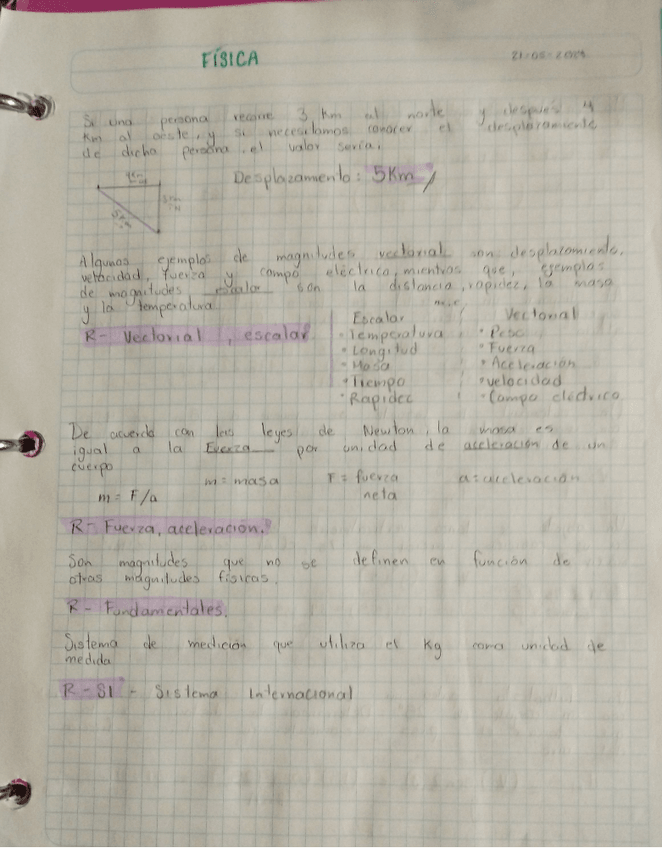 FÍSICA
Si una persona recorre 3 Km al norte y después 4
Km al oeste, y si necesitamos conocer el desplazamiento
de dicha persona, el valor sería.
4Km
3Km
5Km
Desplazamiento: 5Km
Algunos ejemplos de magnitudes vectorial son desplazamiento,
velocidad, fuerza y campo eléctrico, mientras que, ejemplos
de magnitudes escalar son la distancia, rapidez, la masa
y la temperatura
R- Vectorial, escalar
Escalar
• Temperatura
• Longitud
• Masa
• Tiempo
• Rapidez
Vectorial
• Peso
• Fuerza
• Aceleración
• velocidad
• Campo eléctrico
De acuerdo con las leyes de Newton, la masa es
igual a la Fuerza por unidad de aceleración de un
cuerpo
m = masa F = fuerza neta a = aceleración
m = F/a
R- Fuerza, aceleración.
Son magnitudes que no se definen en función de
otras magnitudes físicas.
R- Fundamentales.
Sistema de medición que utiliza el Kg como unidad de
medida
R - SI - Sistema Internacional